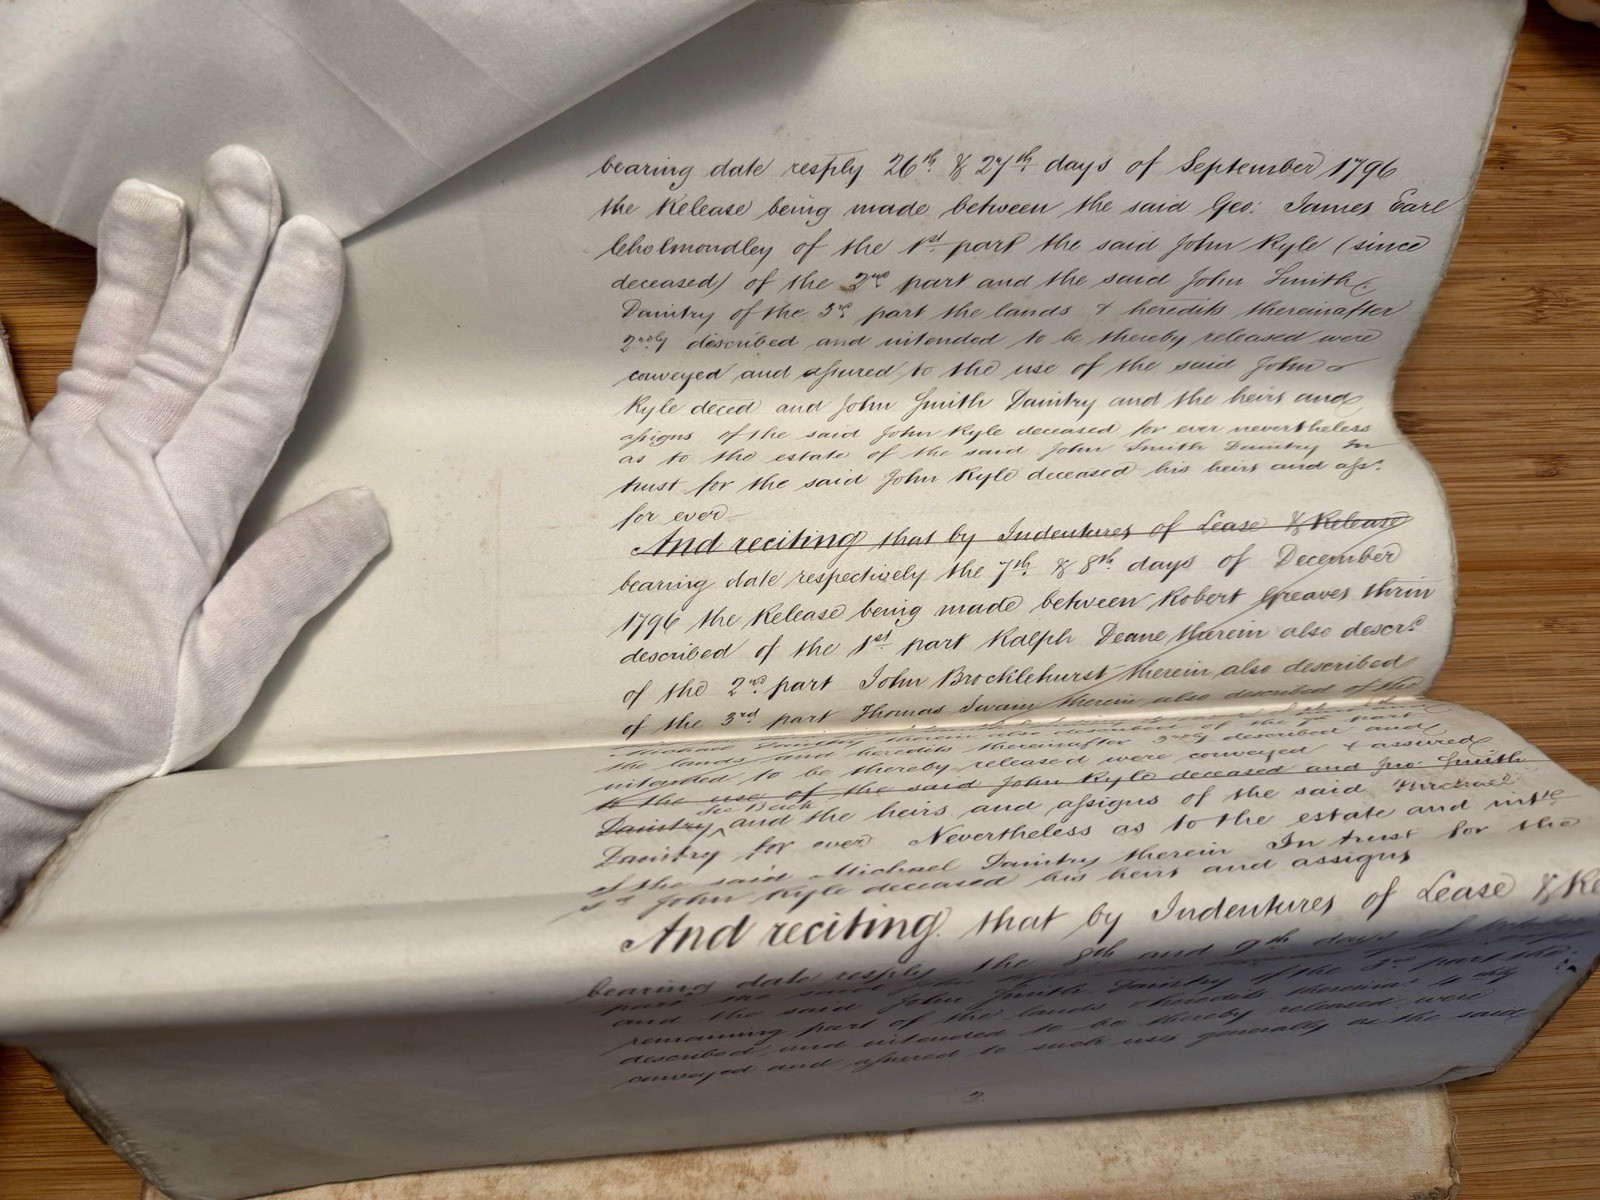 bearing date resply 26th & 27th days of September 1796
the Release being made between the said Geo: James Earl
Cholmondley of the 1st part the said John Ryle (since
deceased) of the 2nd part and the said John Smith
Daintry of the 3rd part the lands & heredits thereinafter
2ndly described and intended to be thereby released were
conveyed and assured to the use of the said John
Ryle deced and John Smith Daintry and the heirs and
assigns of the said John Ryle deceased for ever nevertheless
as to the estate of the said John Smith Daintry In
trust for the said John Ryle deceased his heirs and ass:
for ever
And reciting that by Indentures of Lease & Release
bearing date respectively the 7th & 8th days of December
1796 the Release being made between Robert Greaves thrin
described of the 1st part Ralph Deane therein also descrd
of the 2nd part John Brocklehurst therein also described
of the 3rd part Thomas Swain therein also described of the
Michael Daintry therein also described of the part
the lands and heredits thereinafter 3rdly described and
intended to be thereby released were conveyed & assured
to the use of the said John Ryle deceased and Jno: Smith
See Back
Daintry and the heirs and assigns of the said Michael
Daintry for ever Nevertheless as to the estate and
of the said Michael Daintry therein In trust for the
sd John Ryle deceased his heirs and assigns
And reciting that by Indentures of Lease & Re
bearing date resply the 8th and 9th days of
part the said John
and the said John Smith Daintry of the 3rd part the
remaining part of the lands & heredits
described and intended to be thereby released were
conveyed and assured to such uses generally as the said
2.